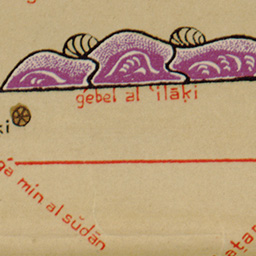 gébel al 'ilāḳi
ḳi
gá min al sūdān
eta